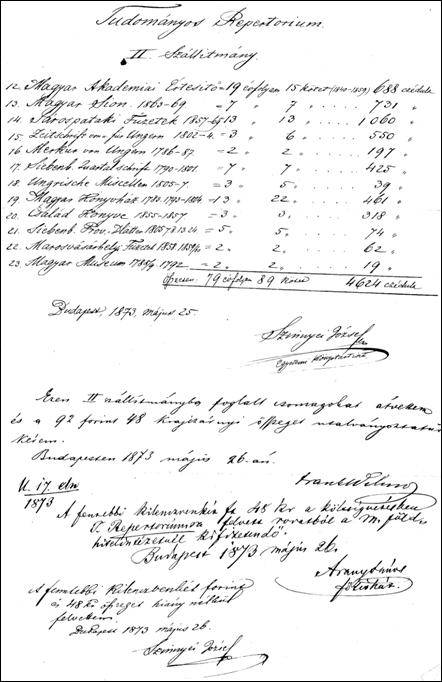 Tudományos Repertorium.
II. Szállitmány.
12. Magyar Akademiai Értesitő = 19 évfolyam 15 kötet (1840-1859) 688 czédula
13. Magyar Sion. 1863-69 = 7 " 7 " 731 "
14. Sárospataki Füzetek 1857-65 13 " 13 " 1060 "
15. Zeitschrift von u. für Ungern 1802-4. = 3 " 6 " 550 "
16. Merkur von Ungarn 1786-87. = 2 " 2 " 197 "
17. Siebenb. Quartalschrift 1790-1801 = 7 " 7 " 425 "
18. Ungrische Miscellen 1805-7. = 3 " 5 " 39 "
19. Magyar Könyvház 1783. 1793-1804 = 13 " 22 " 461 "
20. Család Könyve 1855-1857 = 3 " 3 " 318 "
21. Siebenb. Prov. Blätter = 5 " 5 " 74 "
22. Marosvásárhelyi Füzetek 1858. = 2 " 2 " 62 "
23. Magyar Museum 1792 = 2 " 2 " 19 "
Összesen: 79 évfolyam 89 kötet 4624 czédula
Budapest, 1873. május 25.
Szinnyei József
Ezen II szállitmányba foglalt csomagokat átvettem
és a 92 forint 48 krajczárnyi összeget utalványoztatni
kérem.
Budapesten 1873 május 26-án.
1873
A fenebbi kilenczvenkét ft 48 kr a költségvetésben
Repertoriumra felvett rovatból a m. föld-
hitelintézetnél kifizetendő.
Budapest 1873 május 26.
Arany János
főtitkár.
A fentebbi kilenczvenkét forint
és 48 kr összeget hiány nélkül
felvettem.
Budapest 1873 május 26.
Szinnyei József